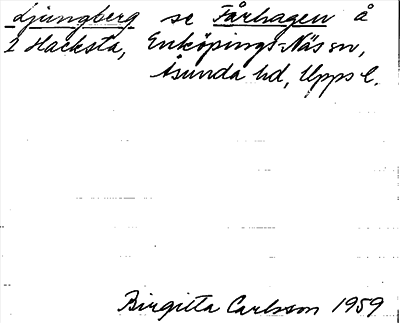 Ljungberg se Fårhagen å
2 Hacksta, Enköpings-Näs sn,
Åsunda hd, Upps l.
Birgitta Carlsson 1959